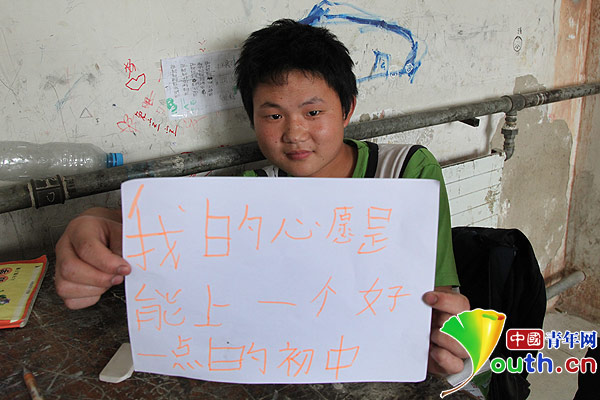 我的心愿是
能上一个好
一点的初中
中國青年网
Youth.cn